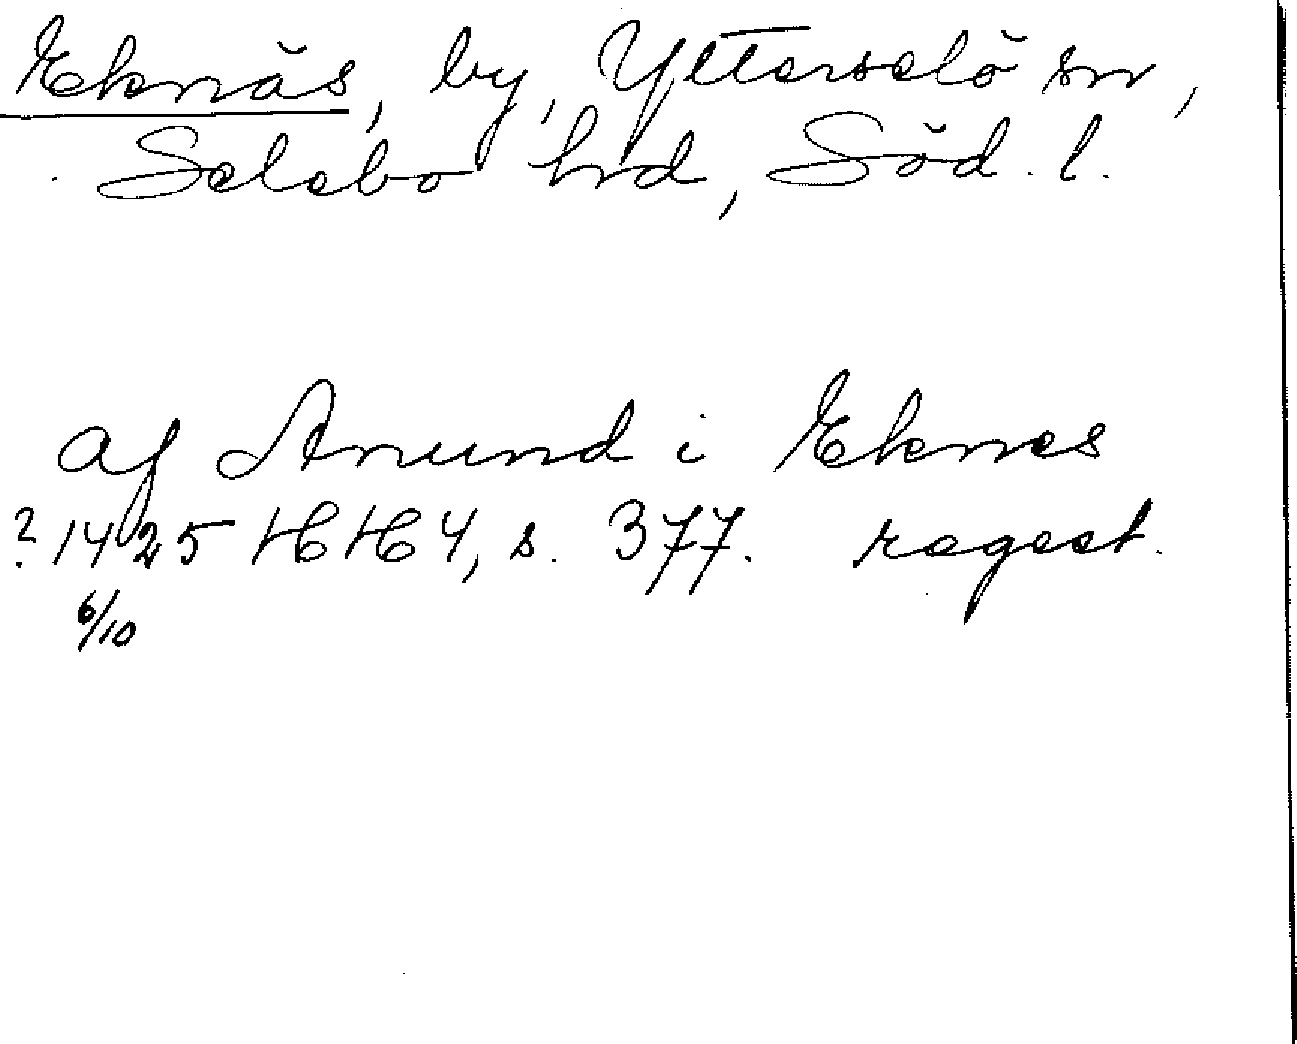 Eknäs, by, Ytterselö sn,
Selebo hrd, Söd. l.
af Anund i Eknes
? 1425 HH 4, s. 377. regest.
6/10